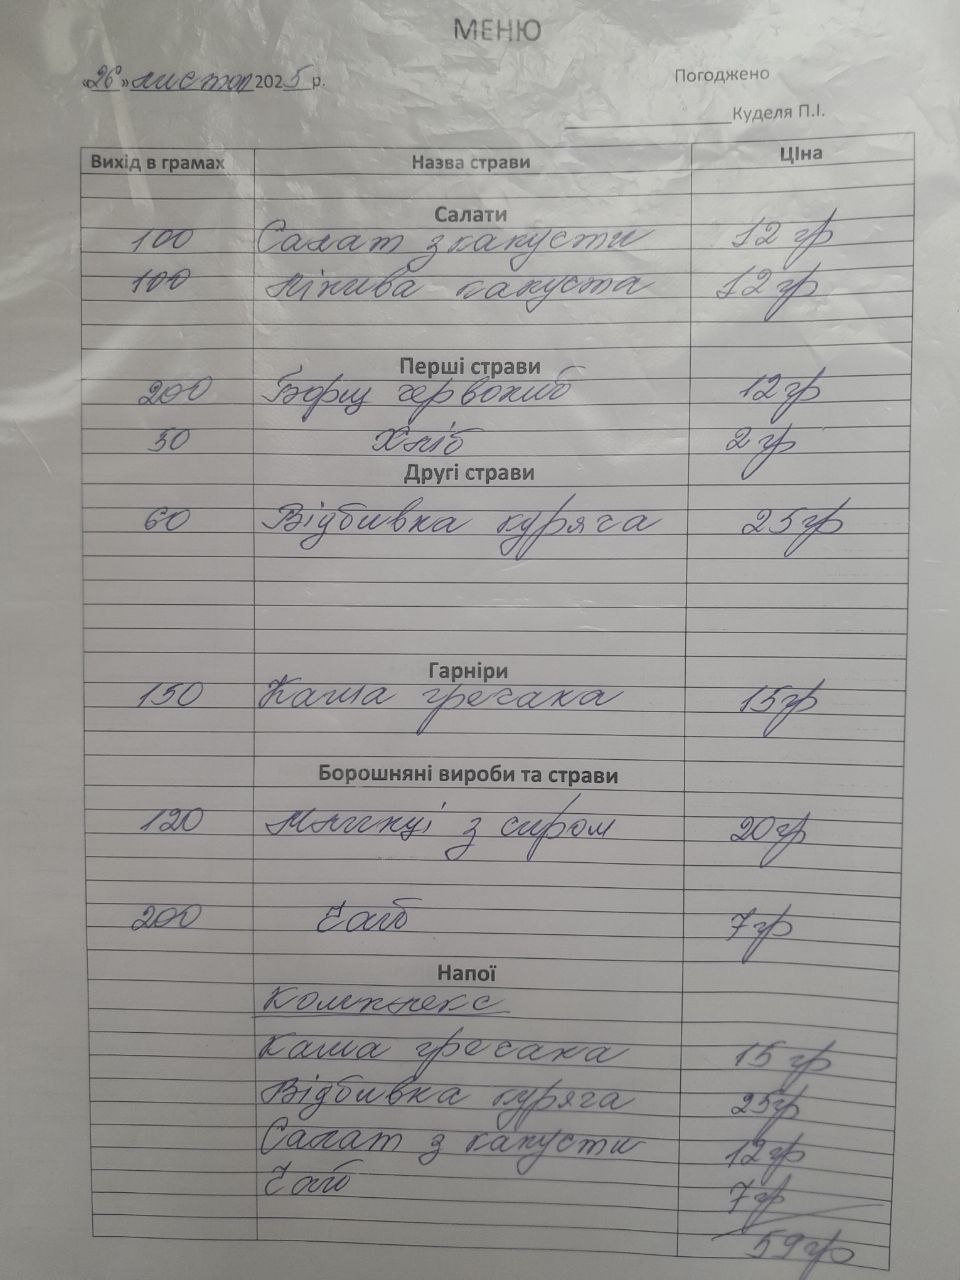 МЕНЮ
«26» листоп 2025 р.
Погоджено
Куделя П.І.
Вихід в грамах Назва страви ЦІна
Салати
100 Салат з капусти 12 гр
100 Пікніва капуста 12 гр
Перші страви
200 Борщ червоний 12 гр
50 Хліб 2 гр
Другі страви
60 Відбивка куряча 25 гр
Гарніри
150 Каша гречана 15 гр
Борошняні вироби та страви
120 Млинці з сиром 20 гр
200 Чай 7 гр
Напої
Комплекс
Каша гречана 15 гр
Відбивка куряча 25 гр
Салат з капусти 12 гр
Чай 7 гр
59 гр